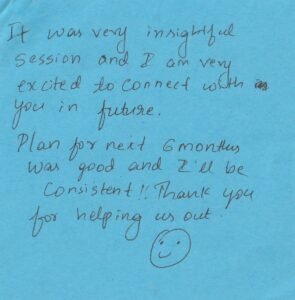 It was very insightful
session and I am very
excited to connect with
you in future.
Plan for next 6 months
was good and I'll be
Consistent!! Thank you
for helping us out.